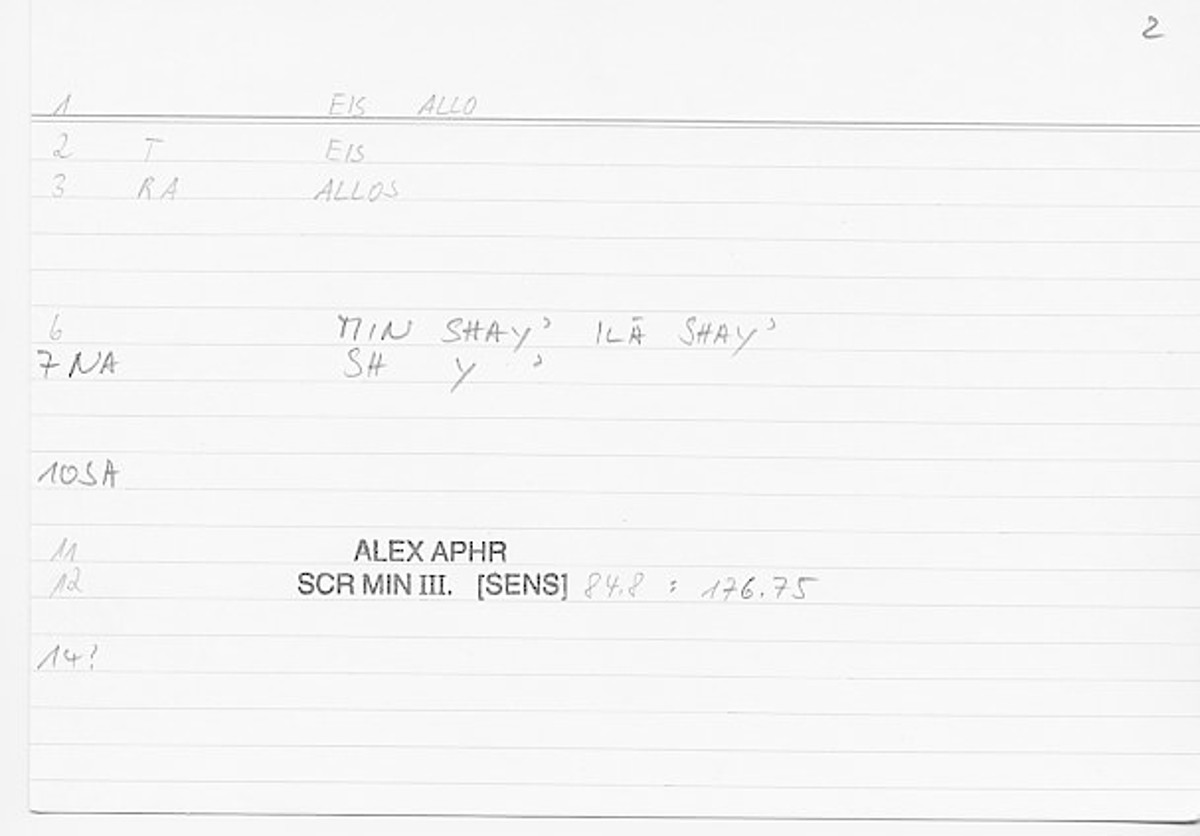 2
1 EIS ALLO
2 T EIS
3 RA ALLOS
6 MIN SHAYʾ ILĀ SHAYʾ
7 NA SH Y ʾ
10 SA
11 ALEX APHR
12 SCR MIN III. [SENS] 84.8 : 176.75
14?